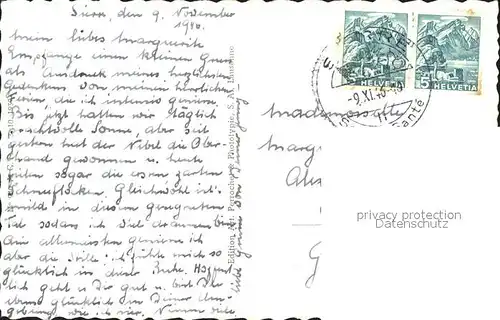 Sierre, den 9. November
1946.
Mein liebes Marguerite
Empfange einen kleinen Gruss
als Ausdruck meines herzlichsten
Gedenkens von meinen herrlichen
Ferien die ich intensiv geniesse.
Bis jetzt hatten wir täglich
prachtvolle Sonne, aber seit
gestern hat der Nebel die Ober-
hand gewonnen u. heute
fielen sogar die ersten zarten
Schneeflocken. Gleichwohl ist's
mild in diesem gesegneten
Tal sodass ich viel draussen bin
Am allermeisten geniesse ich
aber die Stille. Ich fühle mich so
glücklich in dieser Ruhe. Hoffent-
lich geht es Dir gut u. bist Du
ebenso glücklich in Deiner Um-
gebung wie ich hier. Nimm viele
liebe Grüsse von Deiner
Edition Perrochet Phototypie, S. A., Lausanne
HELVETIA
HELVETIA
SIERRE
-9.XI.46
Mademoiselle
Marg
G
privacy protection
Datenschutz